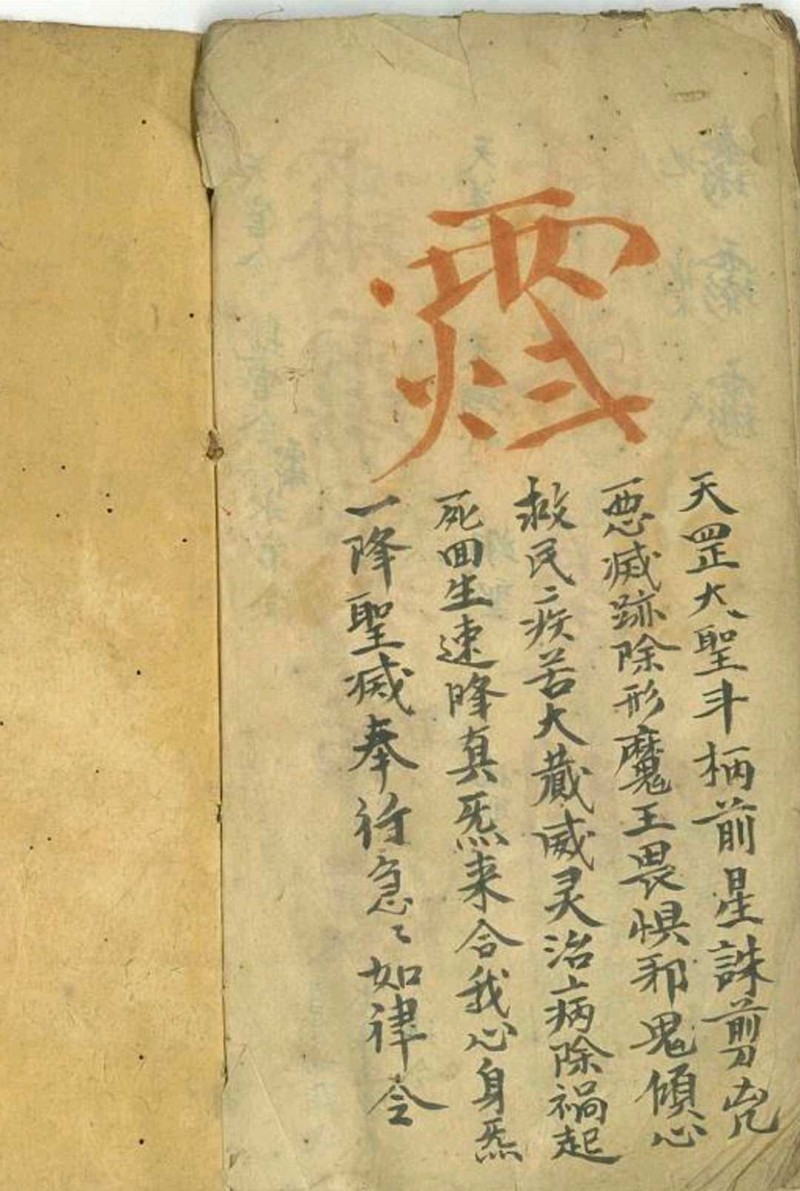 天罡大聖斗柄前星誅剪兇
悪滅跡除形魔王畏惧邪鬼傾心
救民々疾苦大藏威灵治病除禍起
死囬生速降真炁来合我心身炁
一降聖滅奉行急々如律令